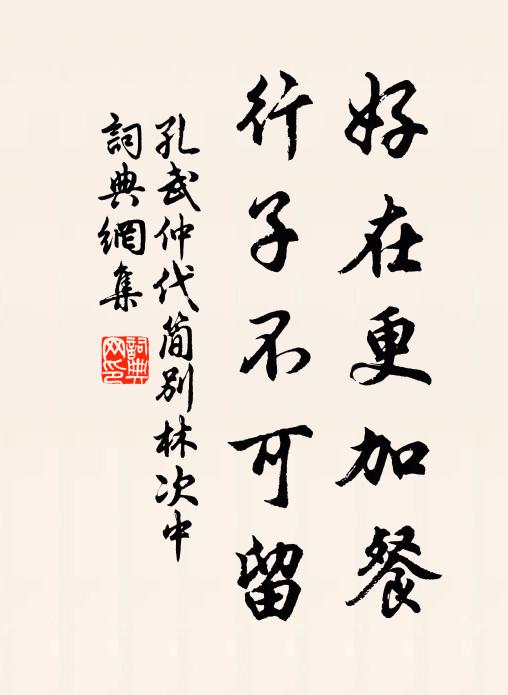 好在更加餐
行子不可留
孔武仲代简別林次中
詞典網集
詞典網印